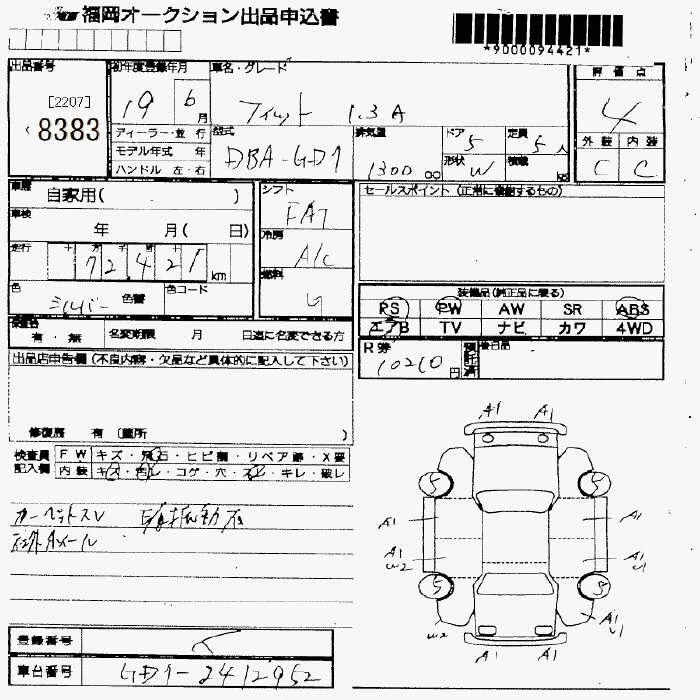 福岡オークション出品申込書
*9000094421*
出品番号 [2207] 8383
初年度登録年月 19 6月
車名・グレード フィット 1.3A
評価点 4
外装 C 内装 C
ディーラー・並行
モデル年式 年
ハンドル 左・右
型式 DBA-GD1
排気量 1300 cc
ドア 5
定員 5人
形状 W
積載 kg
車歴 自家用( )
車検 年 月( 日)
走行 十 万 千 百 十 72,421 km
色 シルバー 色替
色コード
シフト FAT
冷房 A/C
燃料 G
セールスポイント (正常に機能するもの)
装備品(純正品に限る)
PS PW AW SR ABS
エアB TV ナビ カワ 4WD
保証書 有・無
名変期限 月 日迄に名変できる方
R券 10210円 預託済
後日品
出品店申告欄 (不良内容・欠品など具体的に記入して下さい)
修復歴 有 〔箇所 〕
検査員記入欄
FW キズ・飛石・ヒビ割・リペア跡・X要
内装 キズ・色ヒ・コゲ・穴・スレ・キレ・破レ
カーペットスレ
A1 A1
5 5
A1 A1
A1 W2 A1 U1
5 5
W2 A1 U1
A1 A1
登録番号
車台番号 GD1-2412952